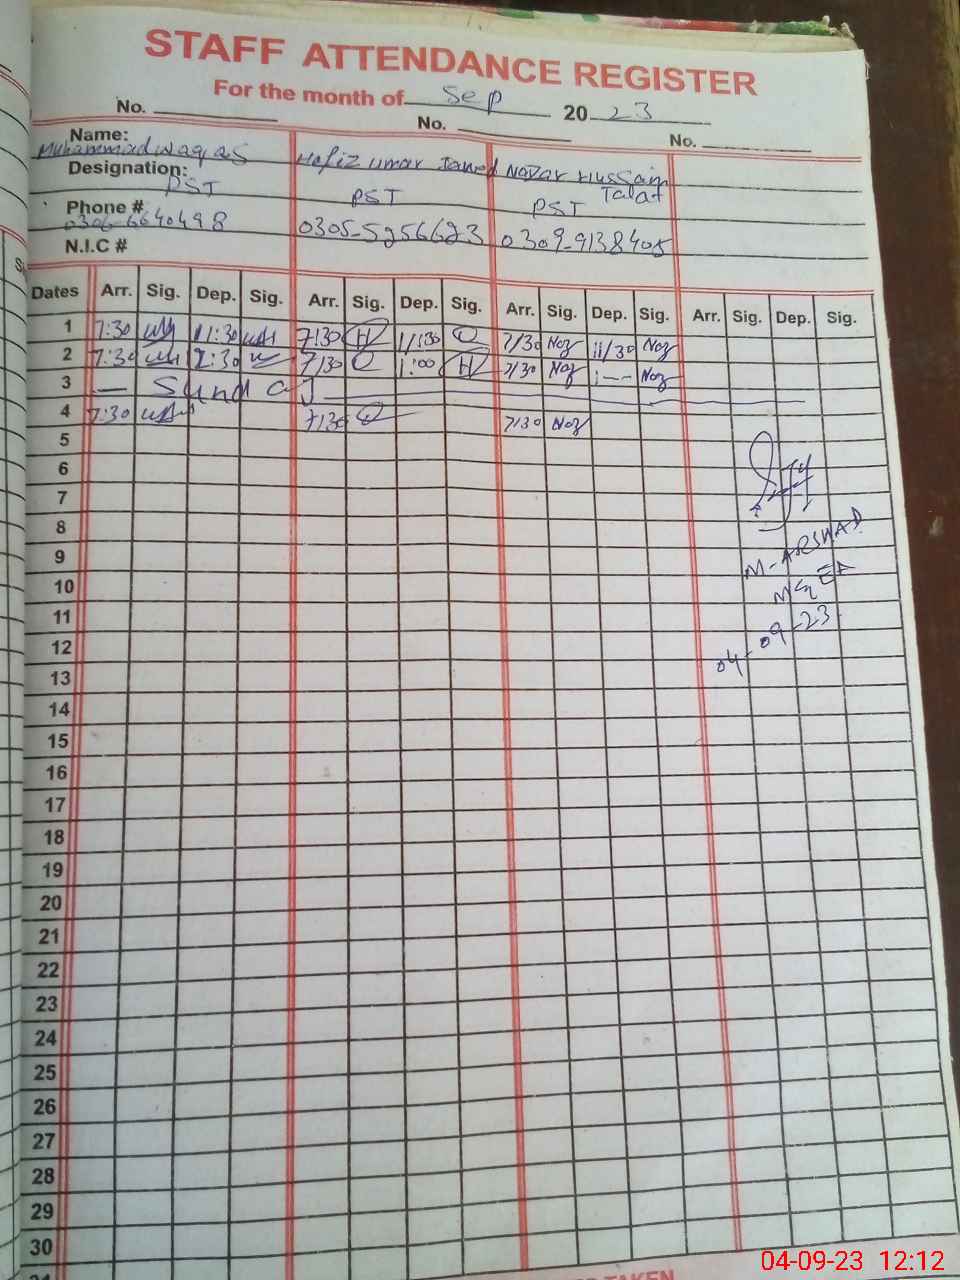 STAFF ATTENDANCE REGISTER
For the month of Sep 2023
No. No. No.
Name:
Muhammad Waqas Hafiz Umar Javed Nazar Hussain
Talat
Designation:
PST PST PST
Phone #
0306-6640498 0305-5256623 0309-9138405
N.I.C #
Dates Arr. Sig. Dep. Sig. Arr. Sig. Dep. Sig. Arr. Sig. Dep. Sig. Arr. Sig. Dep. Sig.
1 7:30 11:30 7:30 11:30 7/30 Naz 11/30 Naz
2 7:30 7:30 1:00 7/30 Naz 1:-- Naz
3 — Sunday
4 7:30 7:30 7:30 Naz
5
6
7
8
9
M-ARSHAD
10
MEA
11
12
04-09-23
13
14
15
16
17
18
19
20
21
22
23
24
25
26
27
28
29
30
04-09-23 12:12
TAKEN